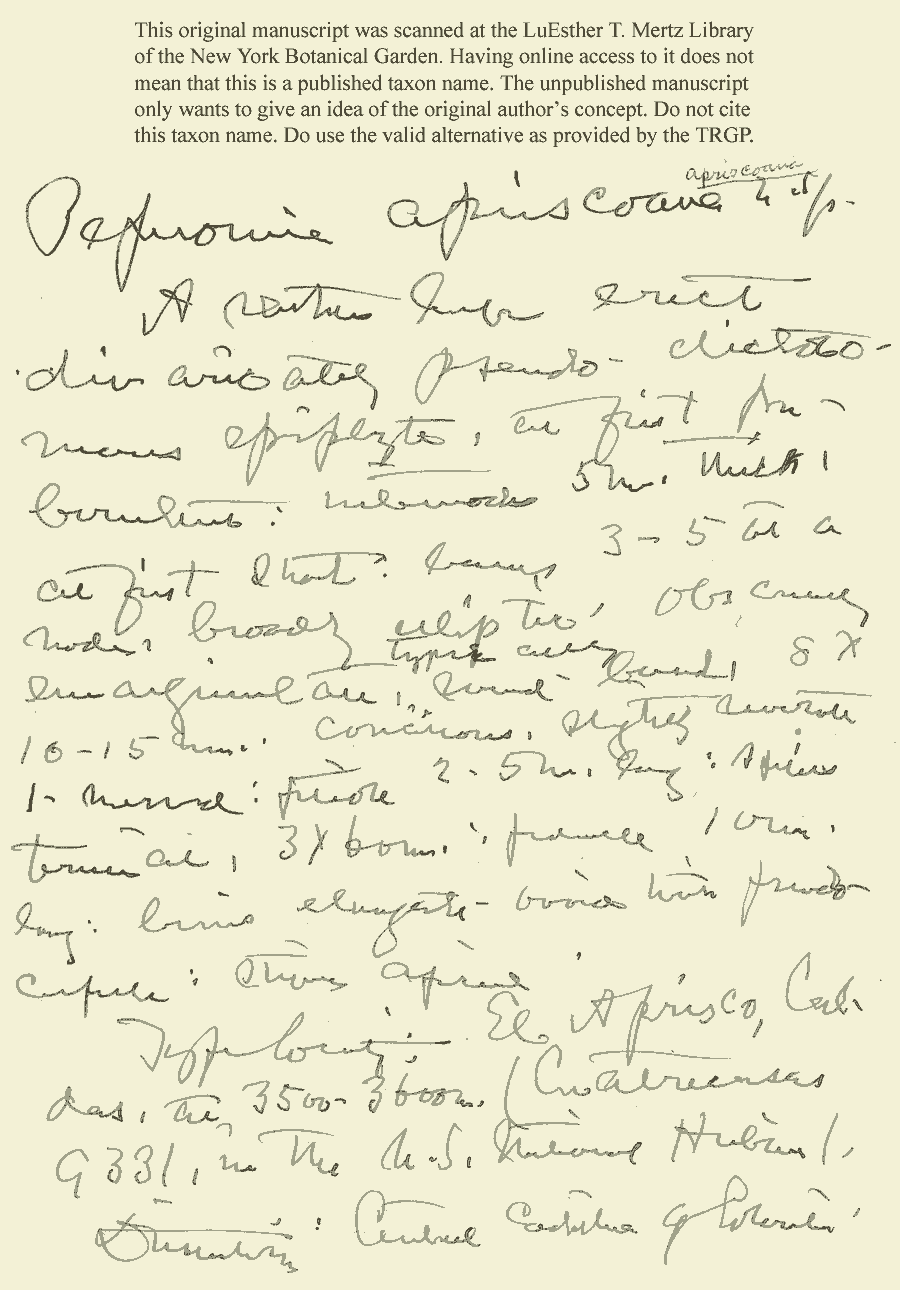 This original manuscript was scanned at the LuEsther T. Mertz Library
of the New York Botanical Garden. Having online access to it does not
mean that this is a published taxon name. The unpublished manuscript
only wants to give an idea of the original author’s concept. Do not cite
this taxon name. Do use the valid alternative as provided by the TRGP.
apriscoana
Peperomia apriscoana n. sp.
A rather large erect
divaricately pseudo-dichoto-
mous epiphyte, at first
5 mm. thick,
at first short: leaves 3-5 at a
node, broadly elliptic, obscurely
emarginulate, round based, 8 X
typically
10-15 mm.: slightly revolute
1-nerved: petiole 2-5 mm. long: spikes
terminal, 3 X 60 mm.: peduncle 10 mm.
long: elongate-ovoid with pseudo-
cupule: stigma apical.
Type locality: El Aprisco, Cal-
das, alt. 3500-3600 m. (Cuatrecasas
9331, in the U.S. National Herbarium).
Central Cordillera of Colombia.